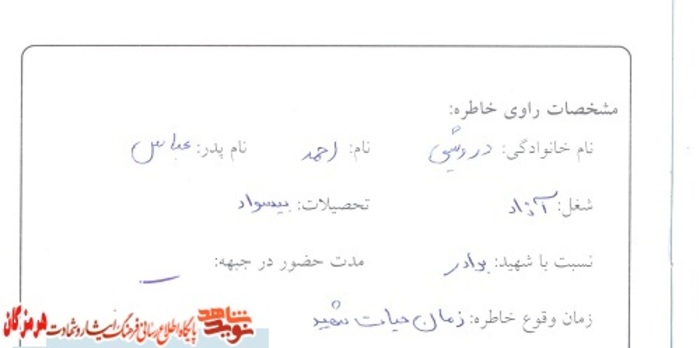 مشخصات راوی خاطره:
نام خانوادگی: درویشی نام: احمد نام پدر: عباس
شغل: آزاد تحصیلات: بیسواد
نسبت با شهید: برادر مدت حضور در جبهه: ــ
زمان وقوع خاطره: زمان حیات شهید
نوید شاهد پایگاه اطلاع رسانی فرهنگ ایثار و شهادت هرمزگان